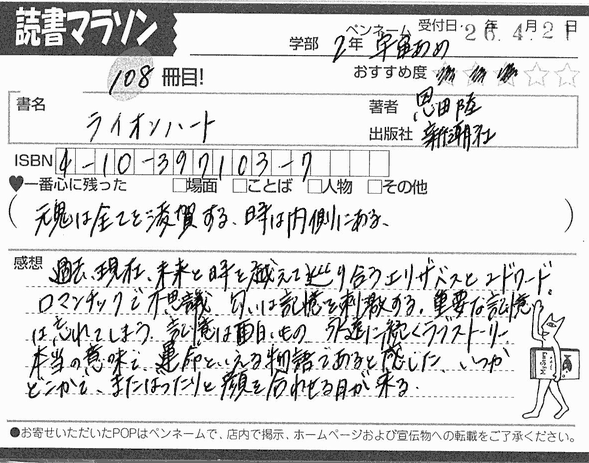 読書マラソン
学部 2年 ペンネーム 宇宙あめ 受付日・26年4月21日
108冊目! おすすめ度 ★★★☆☆
書名 ライオンハート
著者 恩田陸
出版社 新潮社
ISBN 4-10-397103-7
♥一番心に残った □場面 □ことば □人物 □その他
(魂は全てを凌駕する、時は内側にある、)
感想 過去、現在、未来と時を越えて巡り合うエリザベスとエドワード。
ロマンチックで不思議 匂いは記憶を刺激する。重要な記憶
は忘れてしまう。記憶は面白いもの 永遠に続くラブストーリー
本当の意味で、運命といえる物語であると感じた、いつか
どこかで、またばったりと顔を合わせる日が来る.
●お寄せいただいたPOPはペンネームで、店内で掲示、ホームページおよび宣伝物への転載をご了承ください。